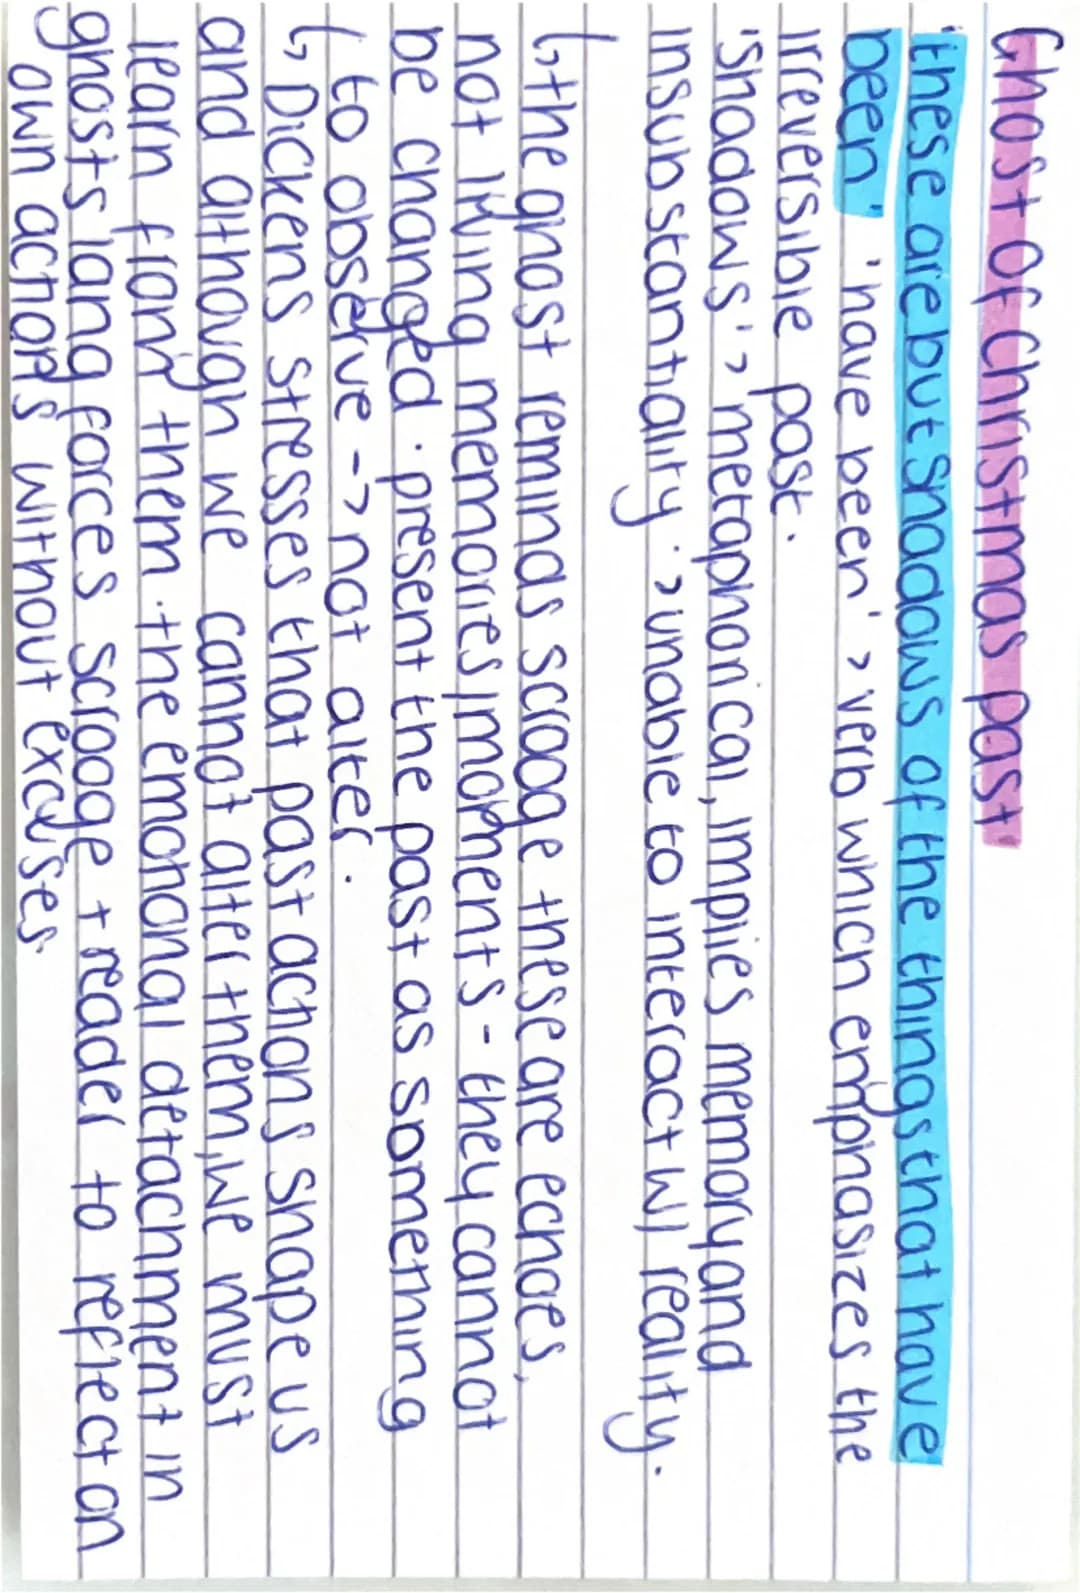 Ghost of Christmas past
'these are but shadows of the things that have
been' 'have been' > verb which emphasizes the
irreversible past.
'shadows' > metaphorical, implies memory and
insubstantiality > unable to interact w/ reality.
↳ the ghost reminds scrooge these are echoes,
not living memories/moments - they cannot
be changed. present the past as something
to observe -> not alter.
↳ Dickens stresses that past actions shape us
and although we cannot alter them, we must
learn from them. the emotional detachment in
ghosts lang forces scrooge + reader to reflect on
own actions without excuses.